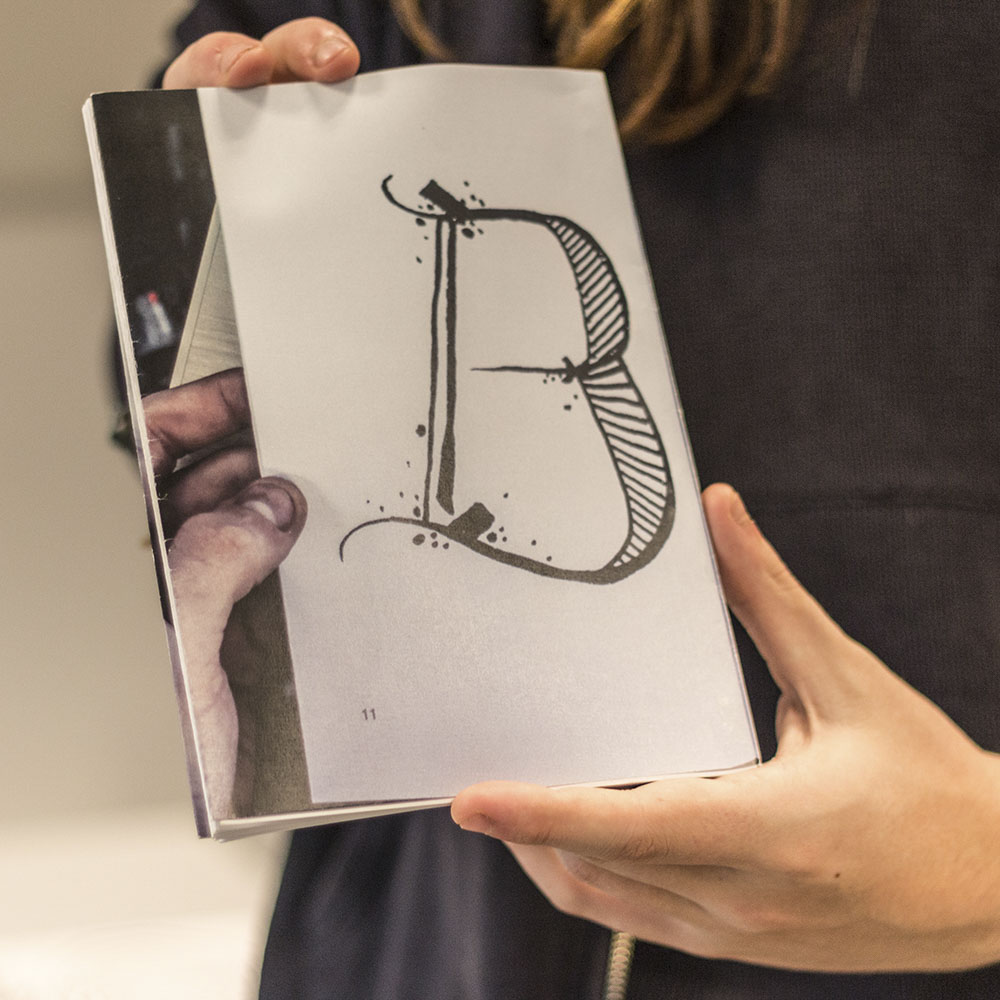 B
11